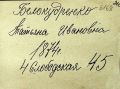 Белокудренко
Татьяна Ивановна
1874г.
4 Слободская 45